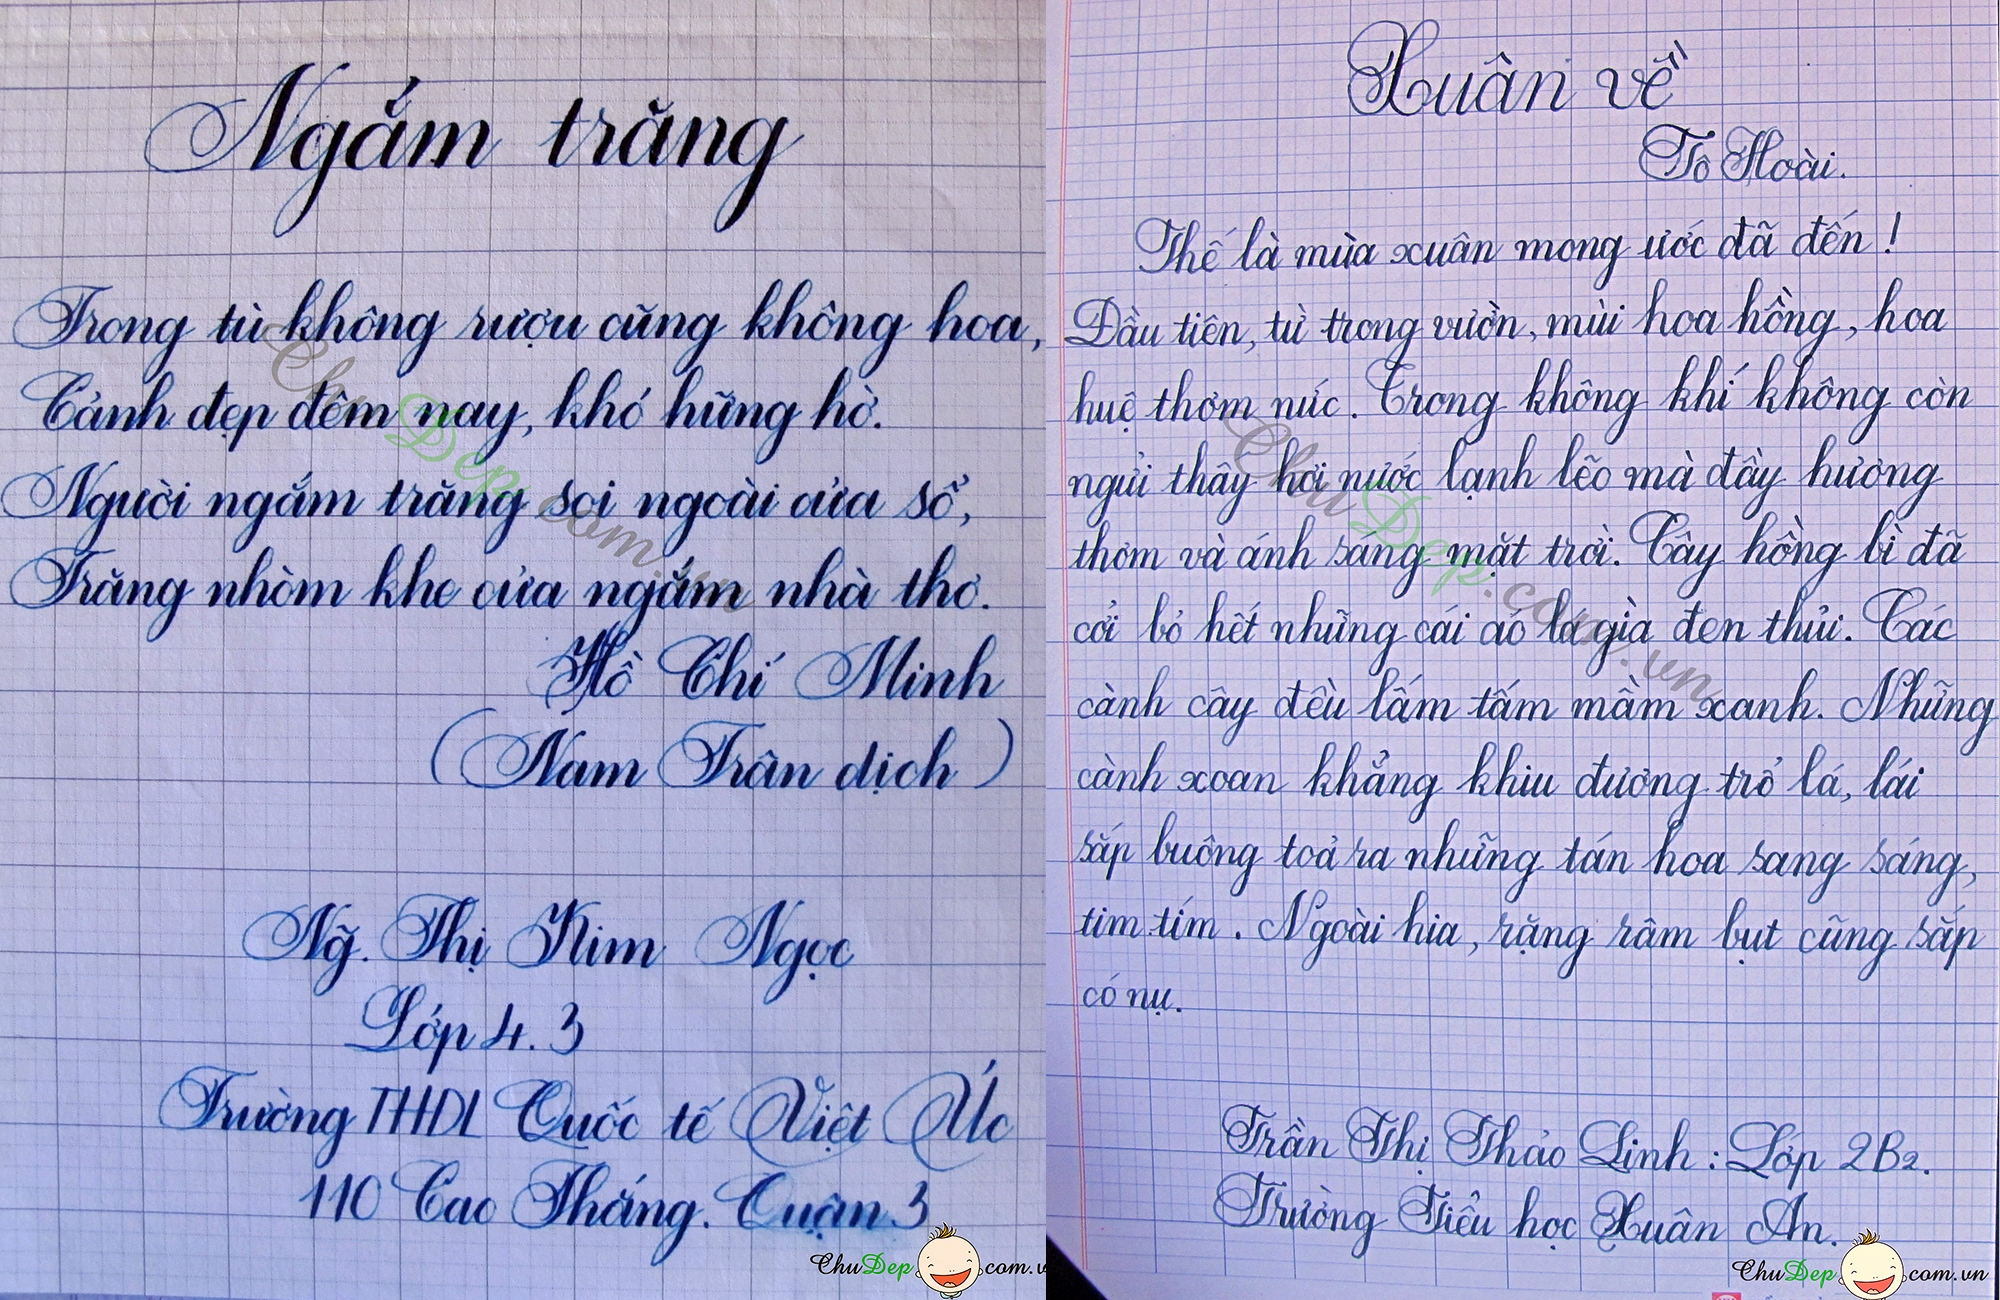 Ngắm trăng
Trong tù không rượu cũng không hoa,
Cảnh đẹp đêm nay, khó hững hờ.
Người ngắm trăng soi ngoài cửa sổ,
Trăng nhòm khe cửa ngắm nhà thơ.
Hồ Chí Minh
(Nam Trân dịch)
Ng̃. Thị Kim Ngọc
Lớp 4.3
Trường THDL Quốc tế Việt Úc
110 Cao Thắng. Quận 3
ChuDep.com.vn
ChuDep com.v
Xuân về
Tô Hoài.
Thế là mùa xuân mong ước đã đến!
Đầu tiên, từ trong vườn, mùi hoa hồng, hoa
huệ thơm nức. Trong không khí không còn
ngửi thấy hơi nước lạnh lẽo mà đầy hương
thơm và ánh sáng mặt trời. Cây hồng bì đã
cởi bỏ hết những cái áo lá già đen thủi. Các
cành cây đều lấm tấm mầm xanh. Những
cành xoan khẳng khiu đương trổ lá, lái
sắp buông toả ra những tán hoa sang sáng,
tim tím. Ngoài kia, rặng râm bụt cũng sắp
có nụ.
Trần Thị Thảo Linh : Lớp 2B2.
Trường Tiểu học Xuân An.
ChuDep.com.vn
ChuDep com.vn